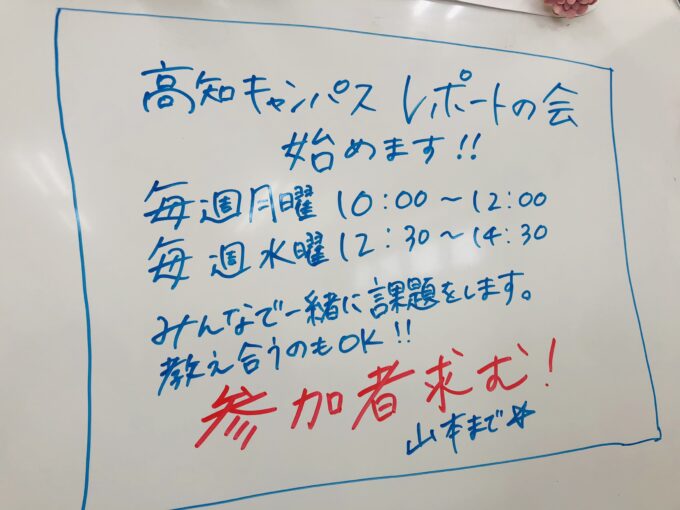 高知キャンパス レポートの会
始めます!!
毎週月曜 10:00～12:00
毎週水曜 12:30～14:30
みんなで一緒に課題をします。
教え合うのもOK!!
参加者求む!
山本まで☆